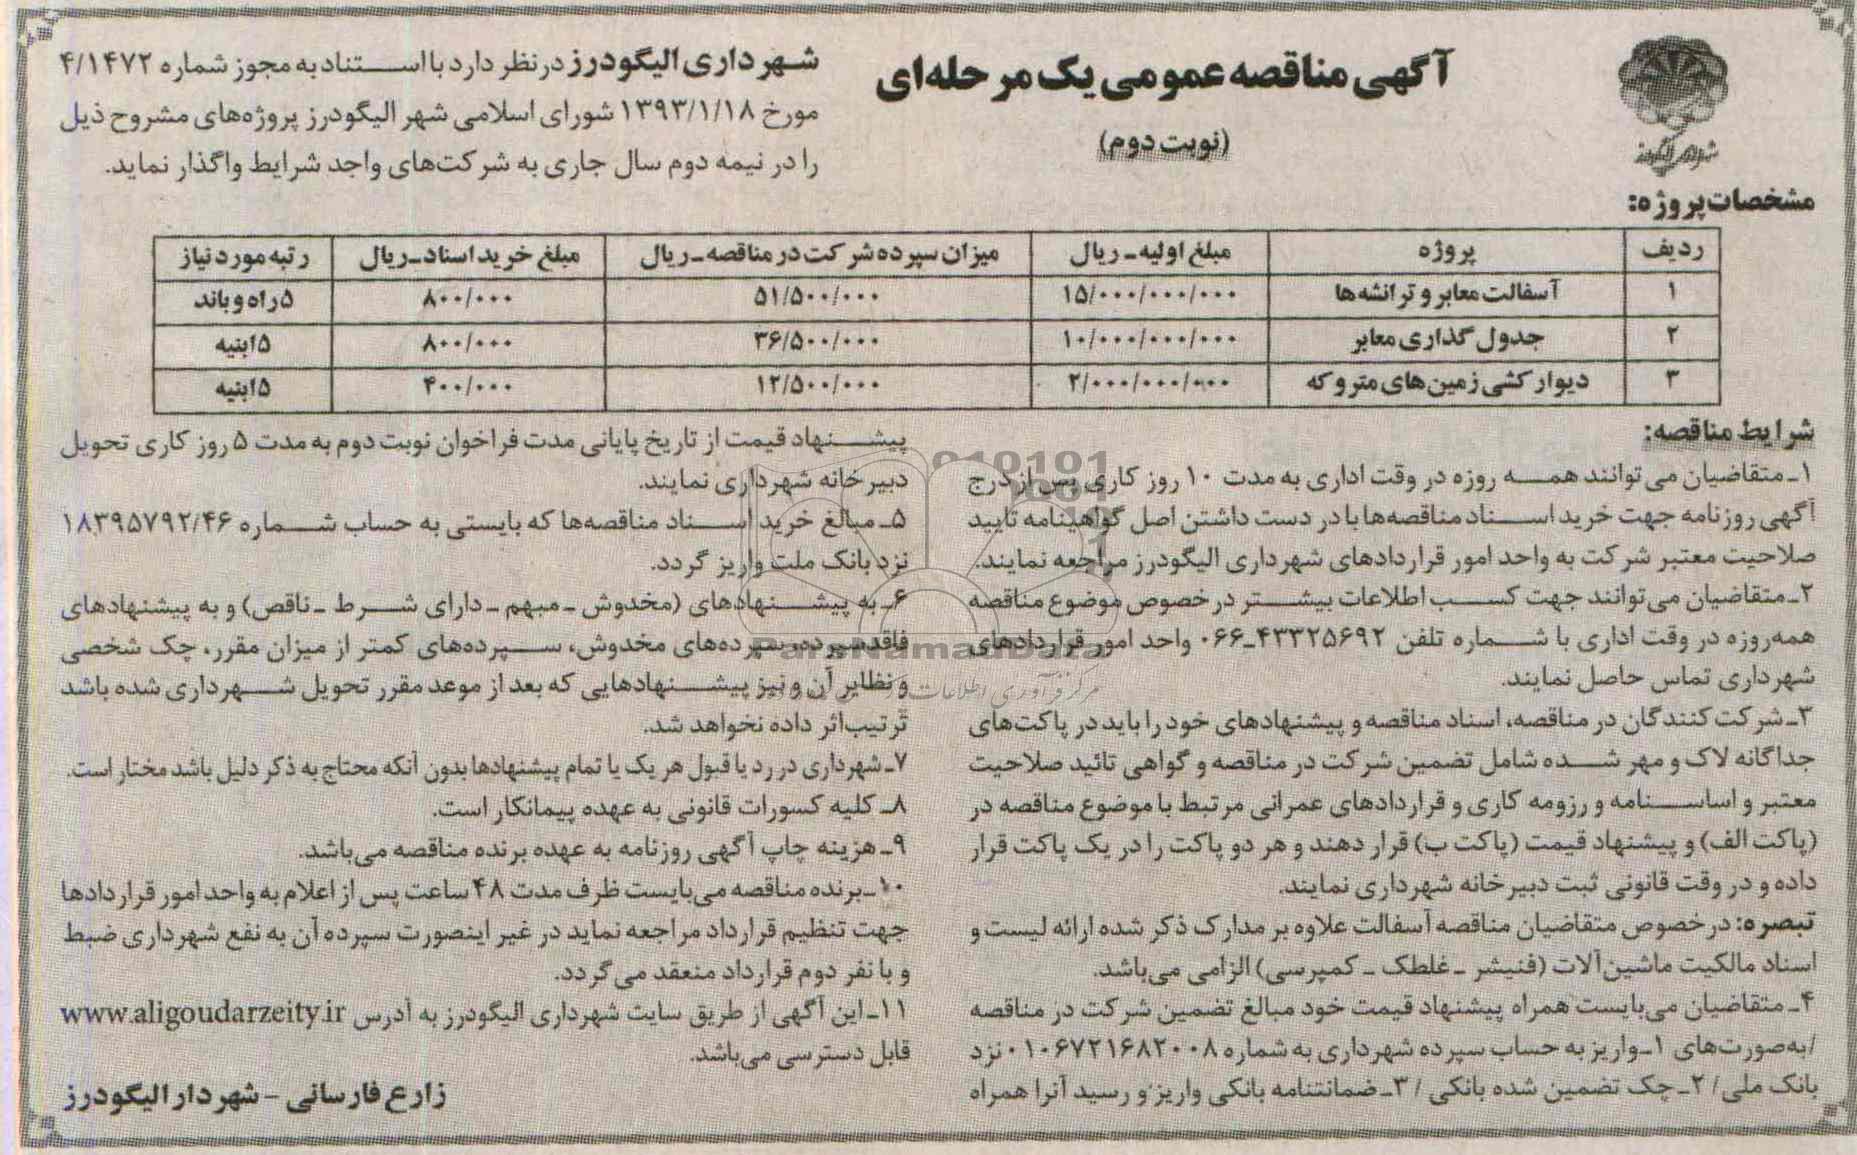 آگهی مناقصه عمومی یک مرحله‌ای
(نوبت دوم)
شهرداری الیگودرز در نظر دارد با استناد به مجوز شماره ۴/۱۴۷۲
مورخ ۱۳۹۳/۱/۱۸ شورای اسلامی شهر الیگودرز پروژه‌های مشروح ذیل
را در نیمه دوم سال جاری به شرکت‌های واجد شرایط واگذار نماید.
مشخصات پروژه:
ردیف پروژه مبلغ اولیه ـ ریال میزان سپرده شرکت در مناقصه ـ ریال مبلغ خرید اسناد ـ ریال رتبه مورد نیاز
۱ آسفالت معابر و ترانشه‌ها ۱۵/۰۰۰/۰۰۰/۰۰۰ ۵۱/۵۰۰/۰۰۰ ۸۰۰/۰۰۰ ۵ راه و باند
۲ جدول گذاری معابر ۱۰/۰۰۰/۰۰۰/۰۰۰ ۳۶/۵۰۰/۰۰۰ ۸۰۰/۰۰۰ ۵ ابنیه
۳ دیوار کشی زمین‌های متروکه ۲/۰۰۰/۰۰۰/۰۰۰ ۱۲/۵۰۰/۰۰۰ ۴۰۰/۰۰۰ ۵ ابنیه
شرایط مناقصه:
۱ـ متقاضیان می‌توانند همه روزه در وقت اداری به مدت ۱۰ روز کاری پس از درج
آگهی روزنامه جهت خرید اسناد مناقصه‌ها با در دست داشتن اصل گواهینامه تایید
صلاحیت معتبر شرکت به واحد امور قراردادهای شهرداری الیگودرز مراجعه نمایند.
۲ـ متقاضیان می‌توانند جهت کسب اطلاعات بیشتر در خصوص موضوع مناقصه
همه‌روزه در وقت اداری با شماره تلفن ۴۳۳۲۵۶۹۲ـ۰۶۶ واحد امور قراردادهای
شهرداری تماس حاصل نمایند.
۳ـ شرکت کنندگان در مناقصه، اسناد مناقصه و پیشنهادهای خود را باید در پاکت‌های
جداگانه لاک و مهر شده شامل تضمین شرکت در مناقصه و گواهی تائید صلاحیت
معتبر و اساسنامه و رزومه کاری و قراردادهای عمرانی مرتبط با موضوع مناقصه در
(پاکت الف) و پیشنهاد قیمت (پاکت ب) قرار دهند و هر دو پاکت را در یک پاکت قرار
داده و در وقت قانونی ثبت دبیرخانه شهرداری نمایند.
تبصره: در خصوص متقاضیان مناقصه آسفالت علاوه بر مدارک ذکر شده ارائه لیست و
اسناد مالکیت ماشین‌آلات (فنیشر ـ غلطک ـ کمپرسی) الزامی می‌باشد.
۴ـ متقاضیان می‌بایست همراه پیشنهاد قیمت خود مبالغ تضمین شرکت در مناقصه
/به‌صورت‌های ۱ـ واریز به حساب سپرده شهرداری به شماره ۰۱۰۶۷۲۱۶۸۲۰۰۸ نزد
بانک ملی/ ۲ـ چک تضمین شده بانکی / ۳ـ ضمانتنامه بانکی واریز و رسید آنرا همراه
پیشنهاد قیمت از تاریخ پایانی مدت فراخوان نوبت دوم به مدت ۵ روز کاری تحویل
دبیرخانه شهرداری نمایند.
۵ـ مبالغ خرید اسناد مناقصه‌ها که بایستی به حساب شماره ۱۸۳۹۵۷۹۲/۴۶
نزد بانک ملت واریز گردد.
۶ـ به پیشنهادهای (مخدوش ـ مبهم ـ دارای شرط ـ ناقص) و به پیشنهادهای
فاقد سپرده، سپرده‌های مخدوش، سپرده‌های کمتر از میزان مقرر، چک شخصی
و نظایر آن و نیز پیشنهادهایی که بعد از موعد مقرر تحویل شهرداری شده باشد
ترتیب‌اثر داده نخواهد شد.
۷ـ شهرداری در رد یا قبول هر یک یا تمام پیشنهادها بدون آنکه محتاج به ذکر دلیل باشد مختار است.
۸ـ کلیه کسورات قانونی به عهده پیمانکار است.
۹ـ هزینه چاپ آگهی روزنامه به عهده برنده مناقصه می‌باشد.
۱۰ـ برنده مناقصه می‌بایست ظرف مدت ۴۸ ساعت پس از اعلام به واحد امور قراردادها
جهت تنظیم قرارداد مراجعه نماید در غیر اینصورت سپرده آن به نفع شهرداری ضبط
و با نفر دوم قرارداد منعقد می‌گردد.
۱۱ـ این آگهی از طریق سایت شهرداری الیگودرز به آدرس www.aligoudarzeity.ir
قابل دسترسی می‌باشد.
زارع فارسانی - شهردار الیگودرز
ParsNamadData